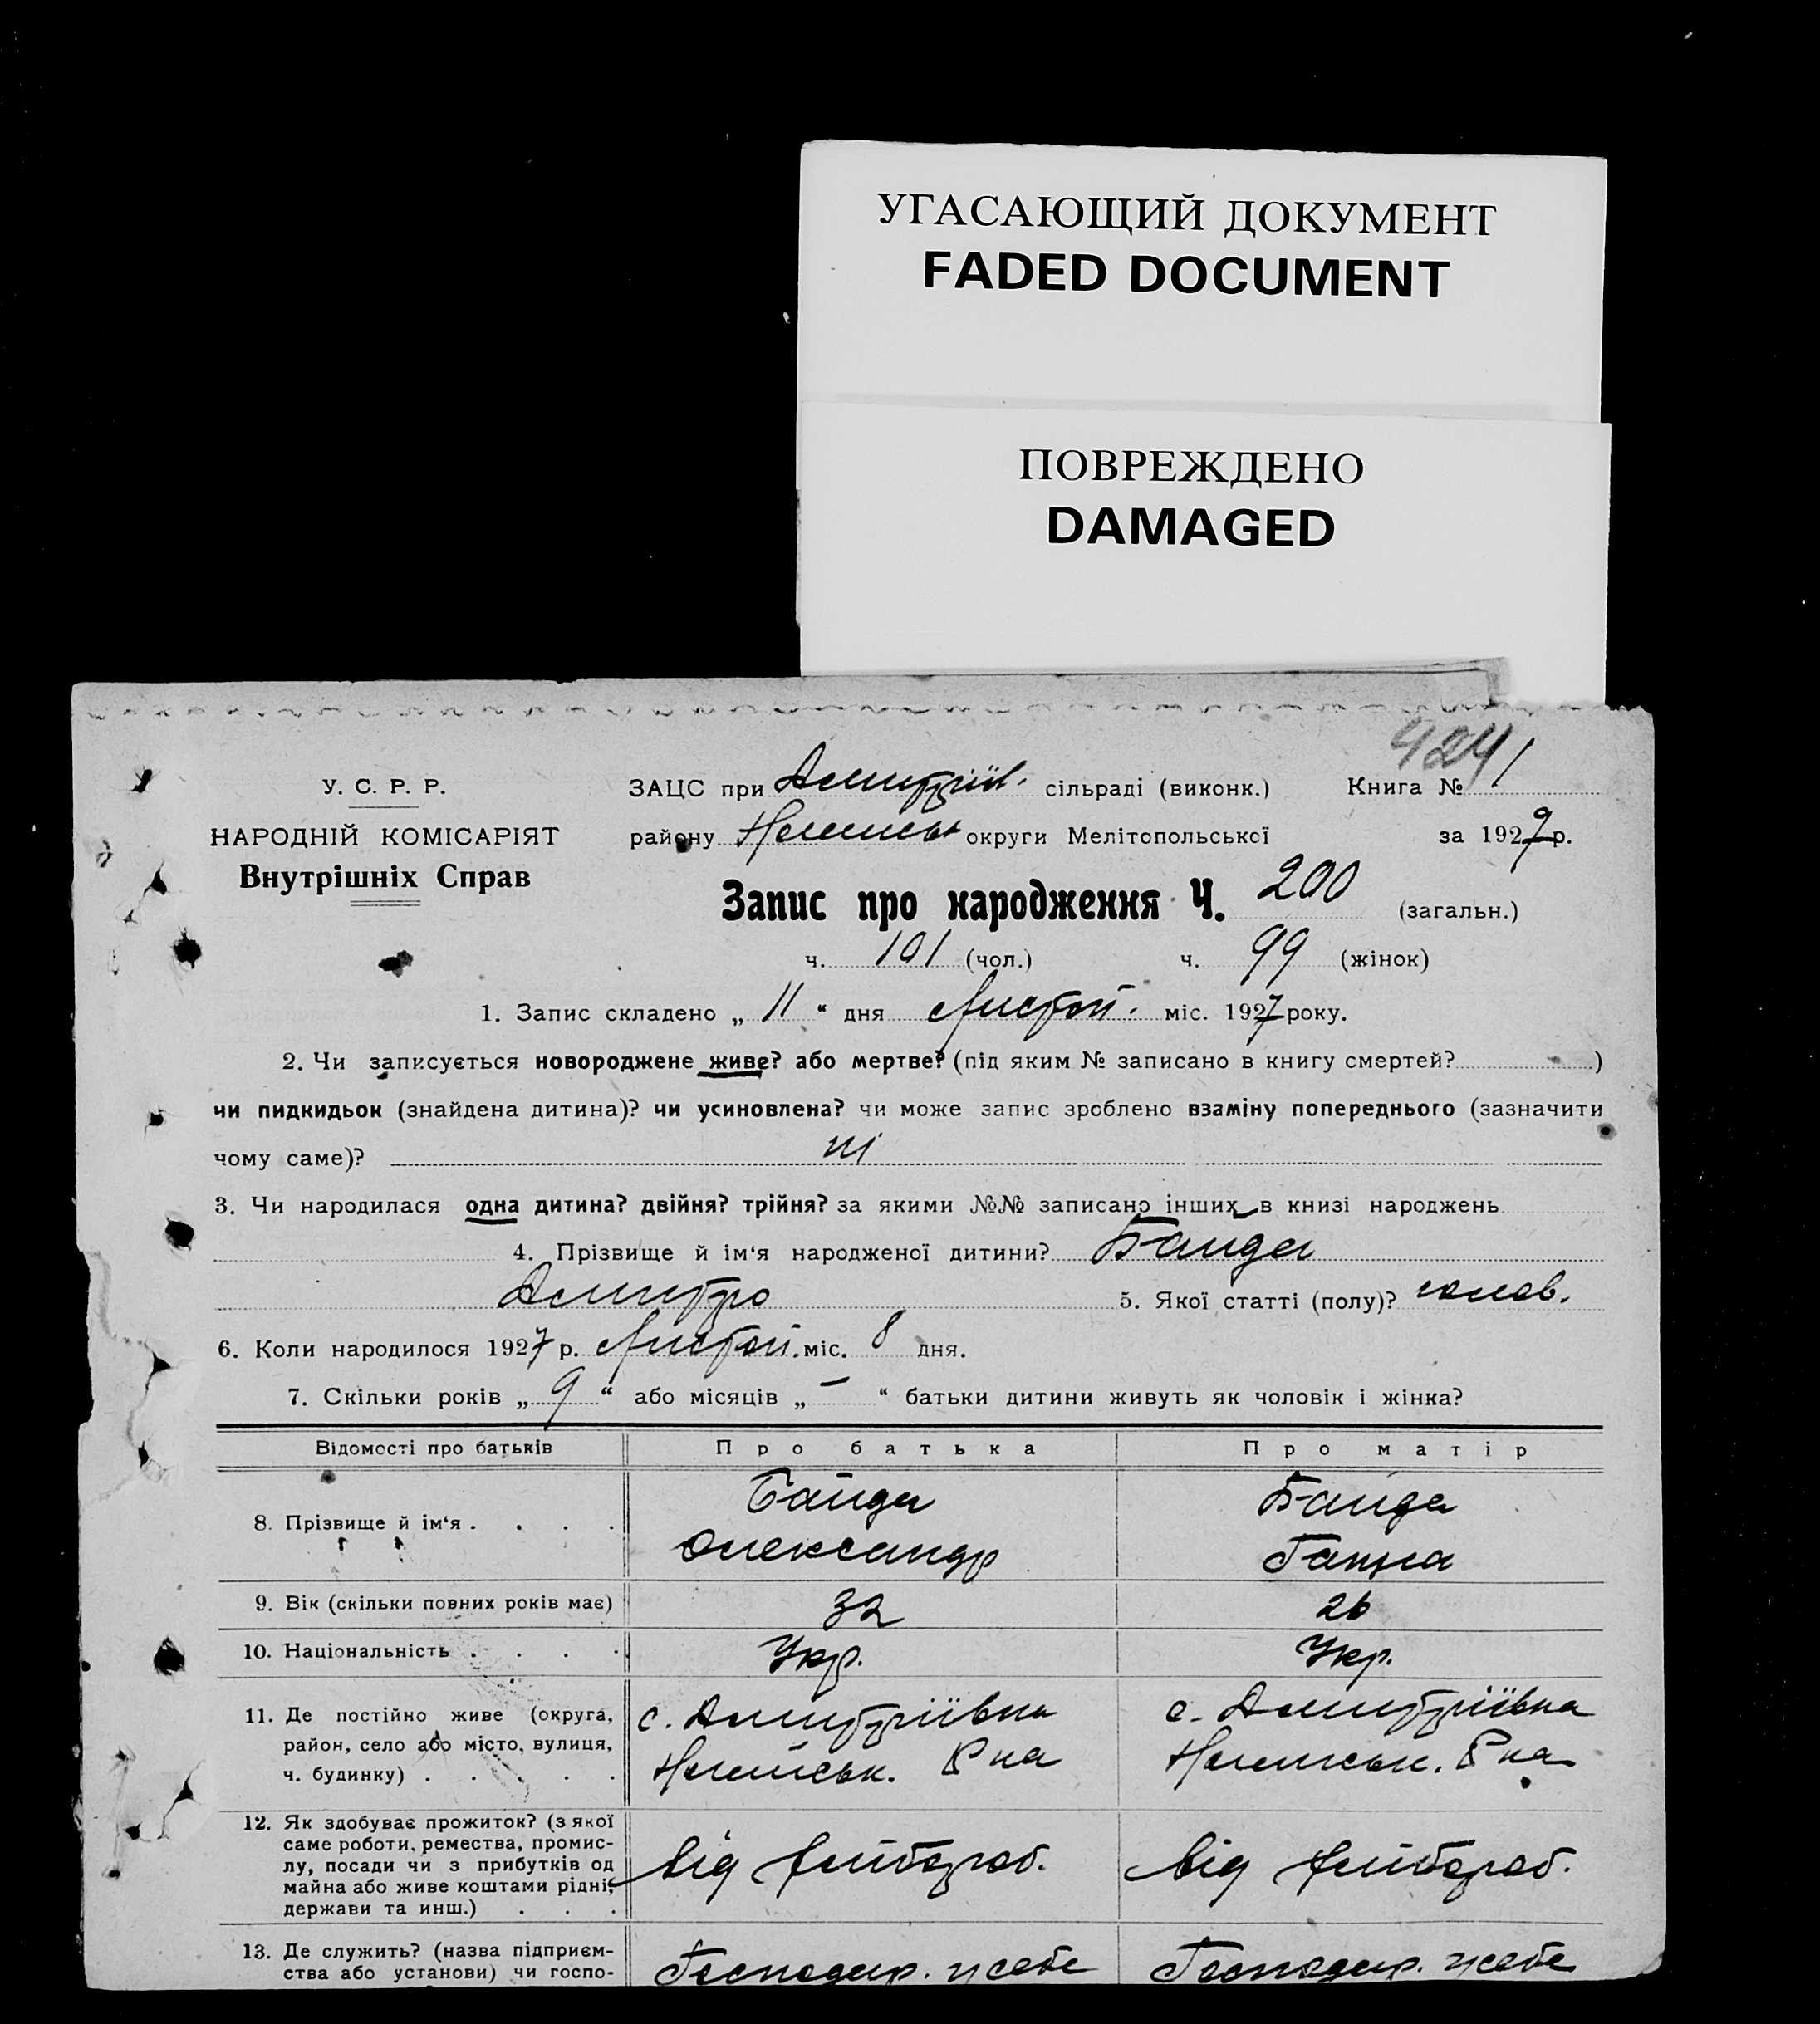 УГАСАЮЩИЙ ДОКУМЕНТ
FADED DOCUMENT
ПОВРЕЖДЕНО
DAMAGED
424
У. С. Р. Р.
НАРОДНІЙ КОМІСАРІЯТ
Внутрішніх Справ
ЗАЦС при Дмитріїв. сільраді (виконк.) Книга № 1
району округи Мелітопольської за 1927 р.
Запис про народження Ч. 200 (загальн.)
ч. 101 (чол.) ч. 99 (жінок)
1. Запис складено „ 11 “ дня Листоп. міс. 1927 року.
2. Чи записується новороджене живе? або мертве? (під яким № записано в книгу смертей? )
чи пидкидьок (знайдена дитина)? чи усиновлена? чи може запис зроблено взаміну попереднього (зазначити
чому саме)? ні
3. Чи народилася одна дитина? двійня? трійня? за якими №№ записано інших в книзі народжень
4. Прізвище й ім‘я народженої дитини? Байда
Дмитро 5. Якої статті (полу)? чолов.
6. Коли народилося 1927 р. Листоп. міс. 8 дня.
7. Скільки років „ 9 “ або місяців „ – “ батьки дитини живуть як чоловік і жінка?
Відомості про батьків Про батька Про матір
8. Прізвище й ім‘я . . . . Байда Байда
Олександр Ганна
9. Вік (скільки повних років має) 32 26
10. Національність . . . . Укр. Укр.
11. Де постійно живе (округа, с. Дмитріївка с. Дмитріївка
район, село або місто, вулиця, Р-на Р-на
ч. будинку) . . . .
12. Як здобуває прожиток? (з якої
саме роботи, ремества, промис-
лу, посади чи з прибутків од від хлібороб. від хлібороб.
майна або живе коштами рідні,
держави та инш.) . . .
13. Де служить? (назва підприєм- Господар. у себе Господар. у себе
ства або установи) чи госпо-